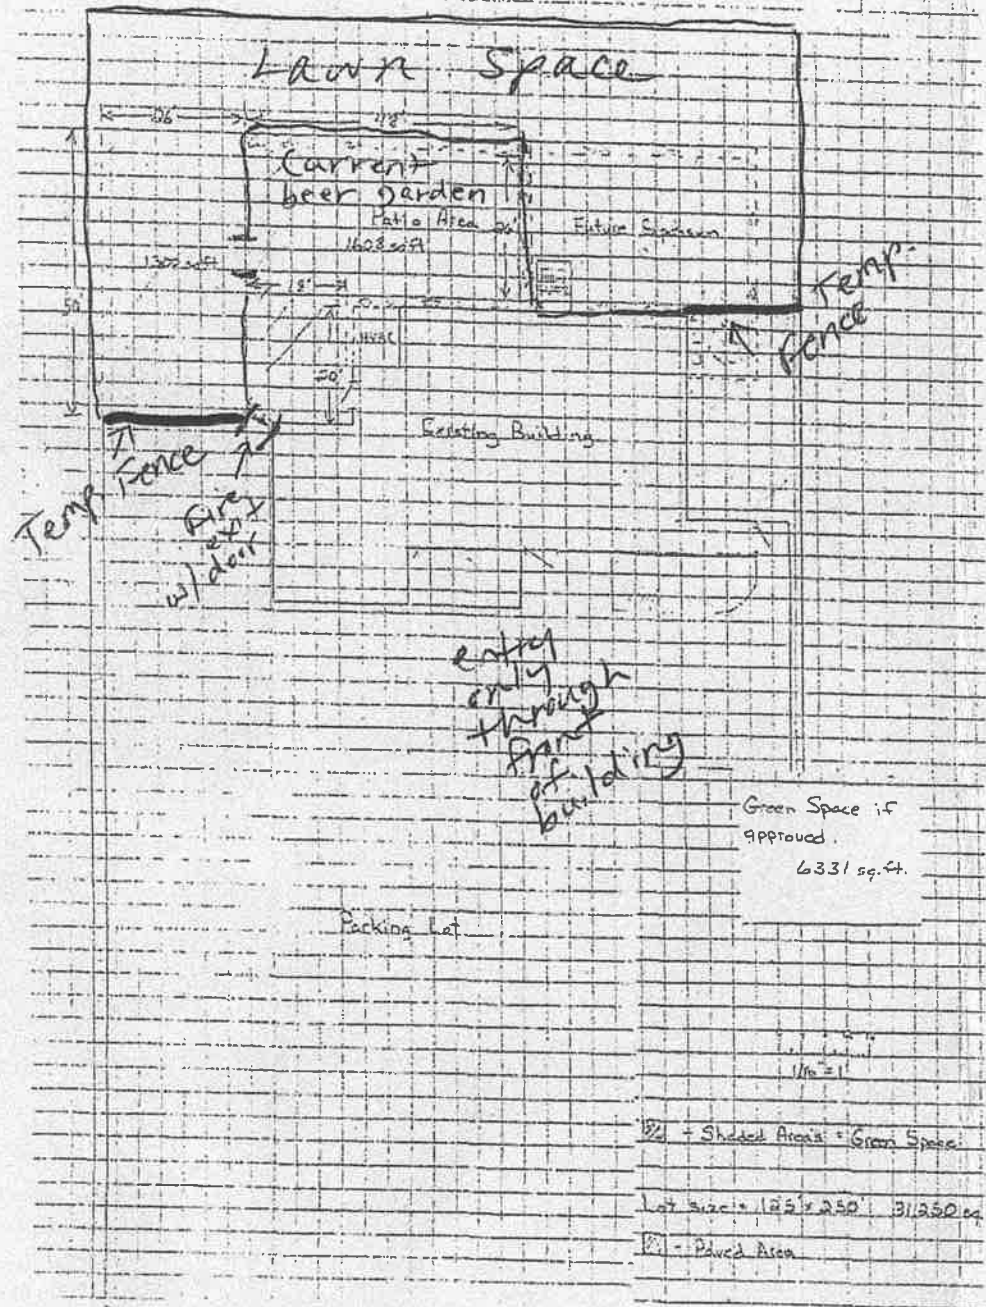 Lawn Space
26'
48'
Current
beer garden
Patio Area 26'
1628 sq ft
Future Expansion
1300 sq ft
18'
50'
HVAC
20'
Temp.
Fence
Existing Building
Temp Fence
Fire
ext
w/door
entry
only
through
front
of
building
Green Space if
approved.
6331 sq.ft.
Parking Lot
- Shaded Areas = Green Space
Lot size = 125' x 250' 31,250 sq
- Paved Area